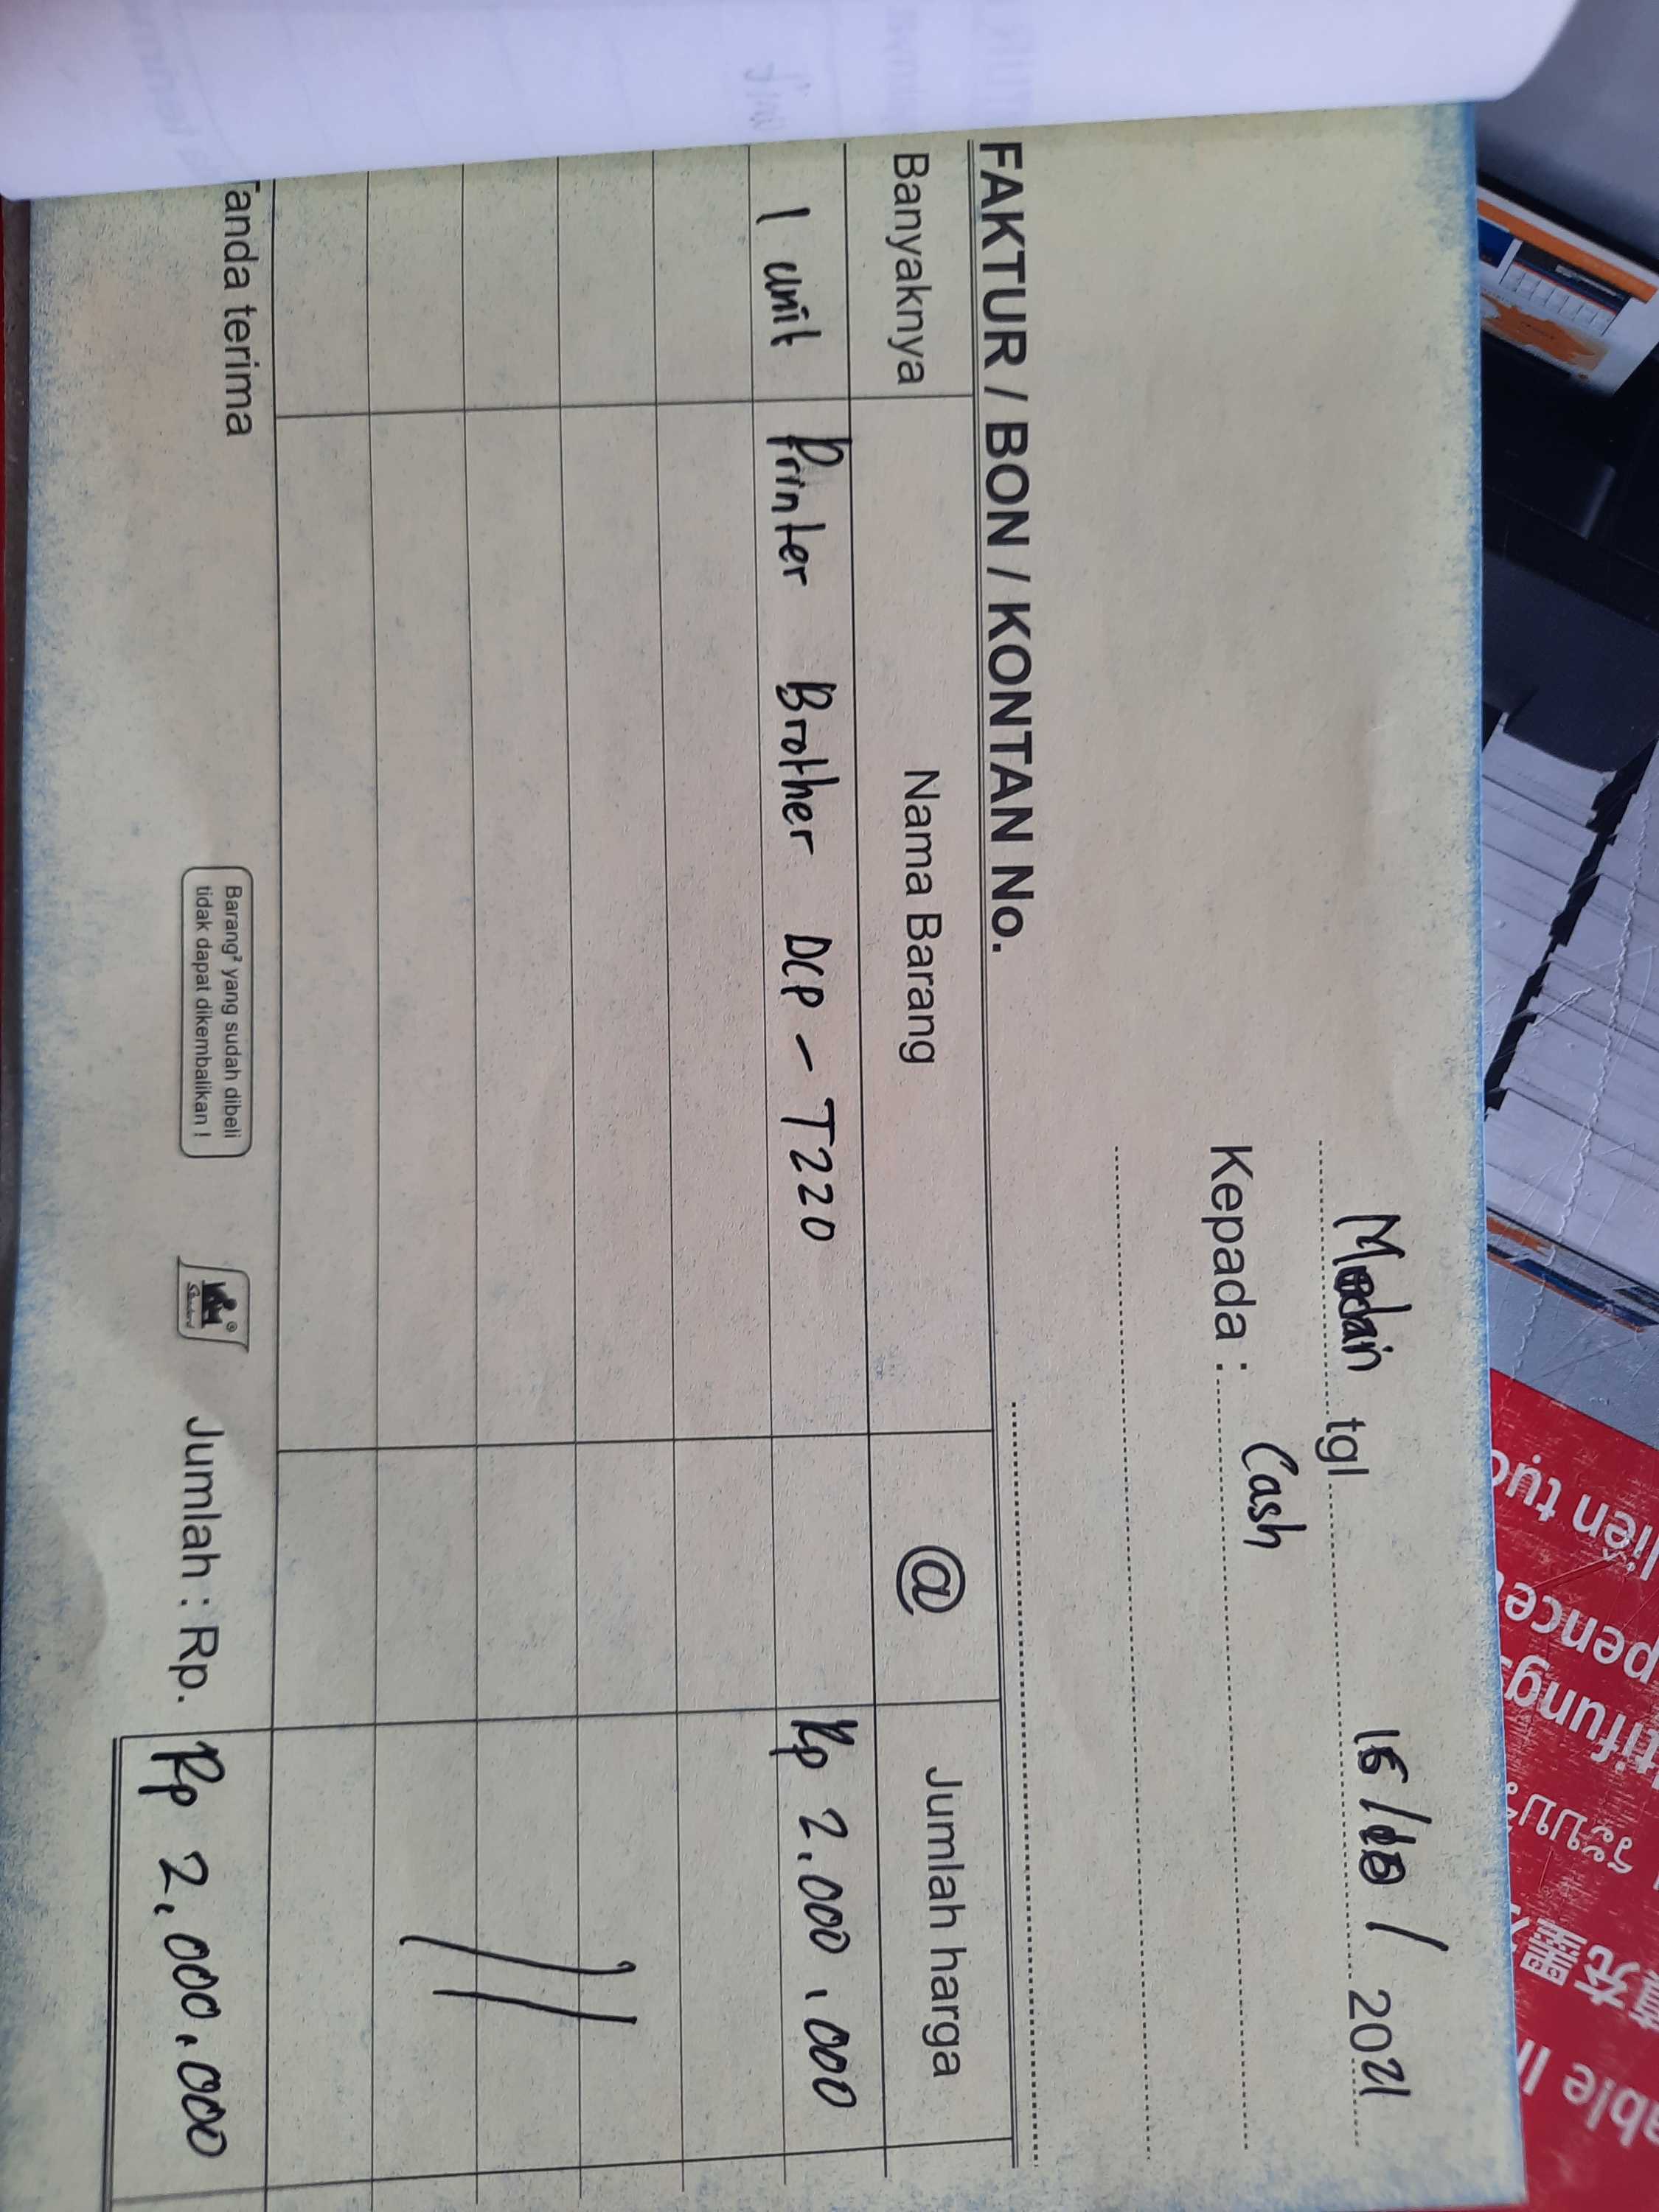 Medan tgl 2021
Kepada : Cash
FAKTUR / BON / KONTAN No.
Banyaknya Nama Barang @ Jumlah harga
1 unit Printer Brother DCP - T220 Rp 2.000.000
Tanda terima
Barang² yang sudah dibeli
tidak dapat dikembalikan !
Jumlah : Rp. Rp 2.000.000
liên tục